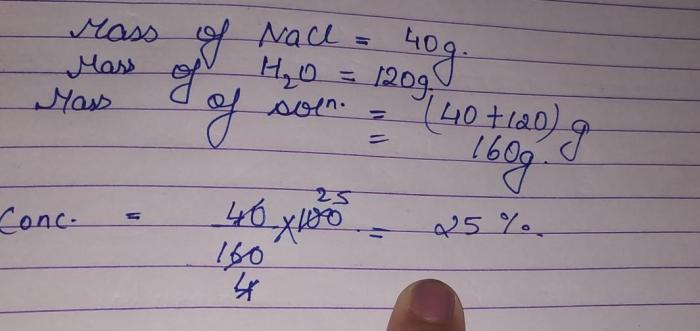 Mass of NaCl = 40g.
Mass of H₂O = 120g.
Mass of soln. = (40+120) g
= 160g.
25
Conc. = 40 × 100 = 25 %.
160
4